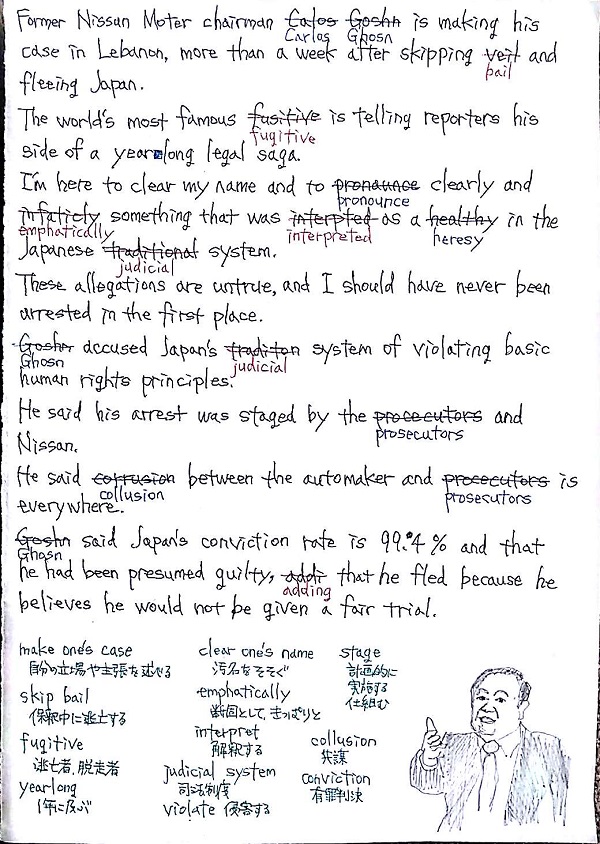 Former Nissan Moter chairman Calos Goshn is making his
Carlos Ghosn
case in Lebanon, more than a week after skipping veit and
bail
fleeing Japan.
The world's most famous fusitive is telling reporters his
fugitive
side of a yearlong legal saga.
I'm here to clear my name and to pronaunce clearly and
pronounce
infaticly something that was interpted as a healthy in the
emphatically interpreted heresy
Japanese traditional system.
judicial
These allegations are untrue, and I should have never been
arrested in the first place.
Goshn accused Japan's traditon system of violating basic
Ghosn judicial
human rights principles.
He said his arrest was staged by the procecutors and
prosecutors
Nissan.
He said corrusion between the automaker and procecutors is
collusion prosecutors
everywhere.
Goshn said Japan's conviction rate is 99.4% and that
Ghosn
he had been presumed guilty, that he fled because he
adding
believes he would not be given a fair trial.
make one's case clear one's name stage
自分の立場や主張を述べる 汚名をそそぐ 計画的に
実施する
仕組む
skip bail emphatically
保釈中に逃亡する 断固として,きっぱりと
fugitive interpret collusion
逃亡者,脱走者 解釈する 共謀
yearlong judicial system conviction
1年に及ぶ 司法制度 有罪判決
violate 侵害する